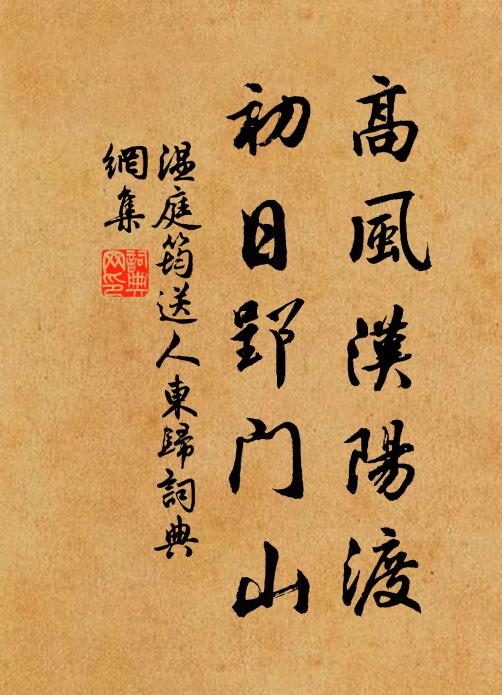 高風漢陽渡
初日郢门山
温庭筠送人東歸詞典
網集
詞典
网印